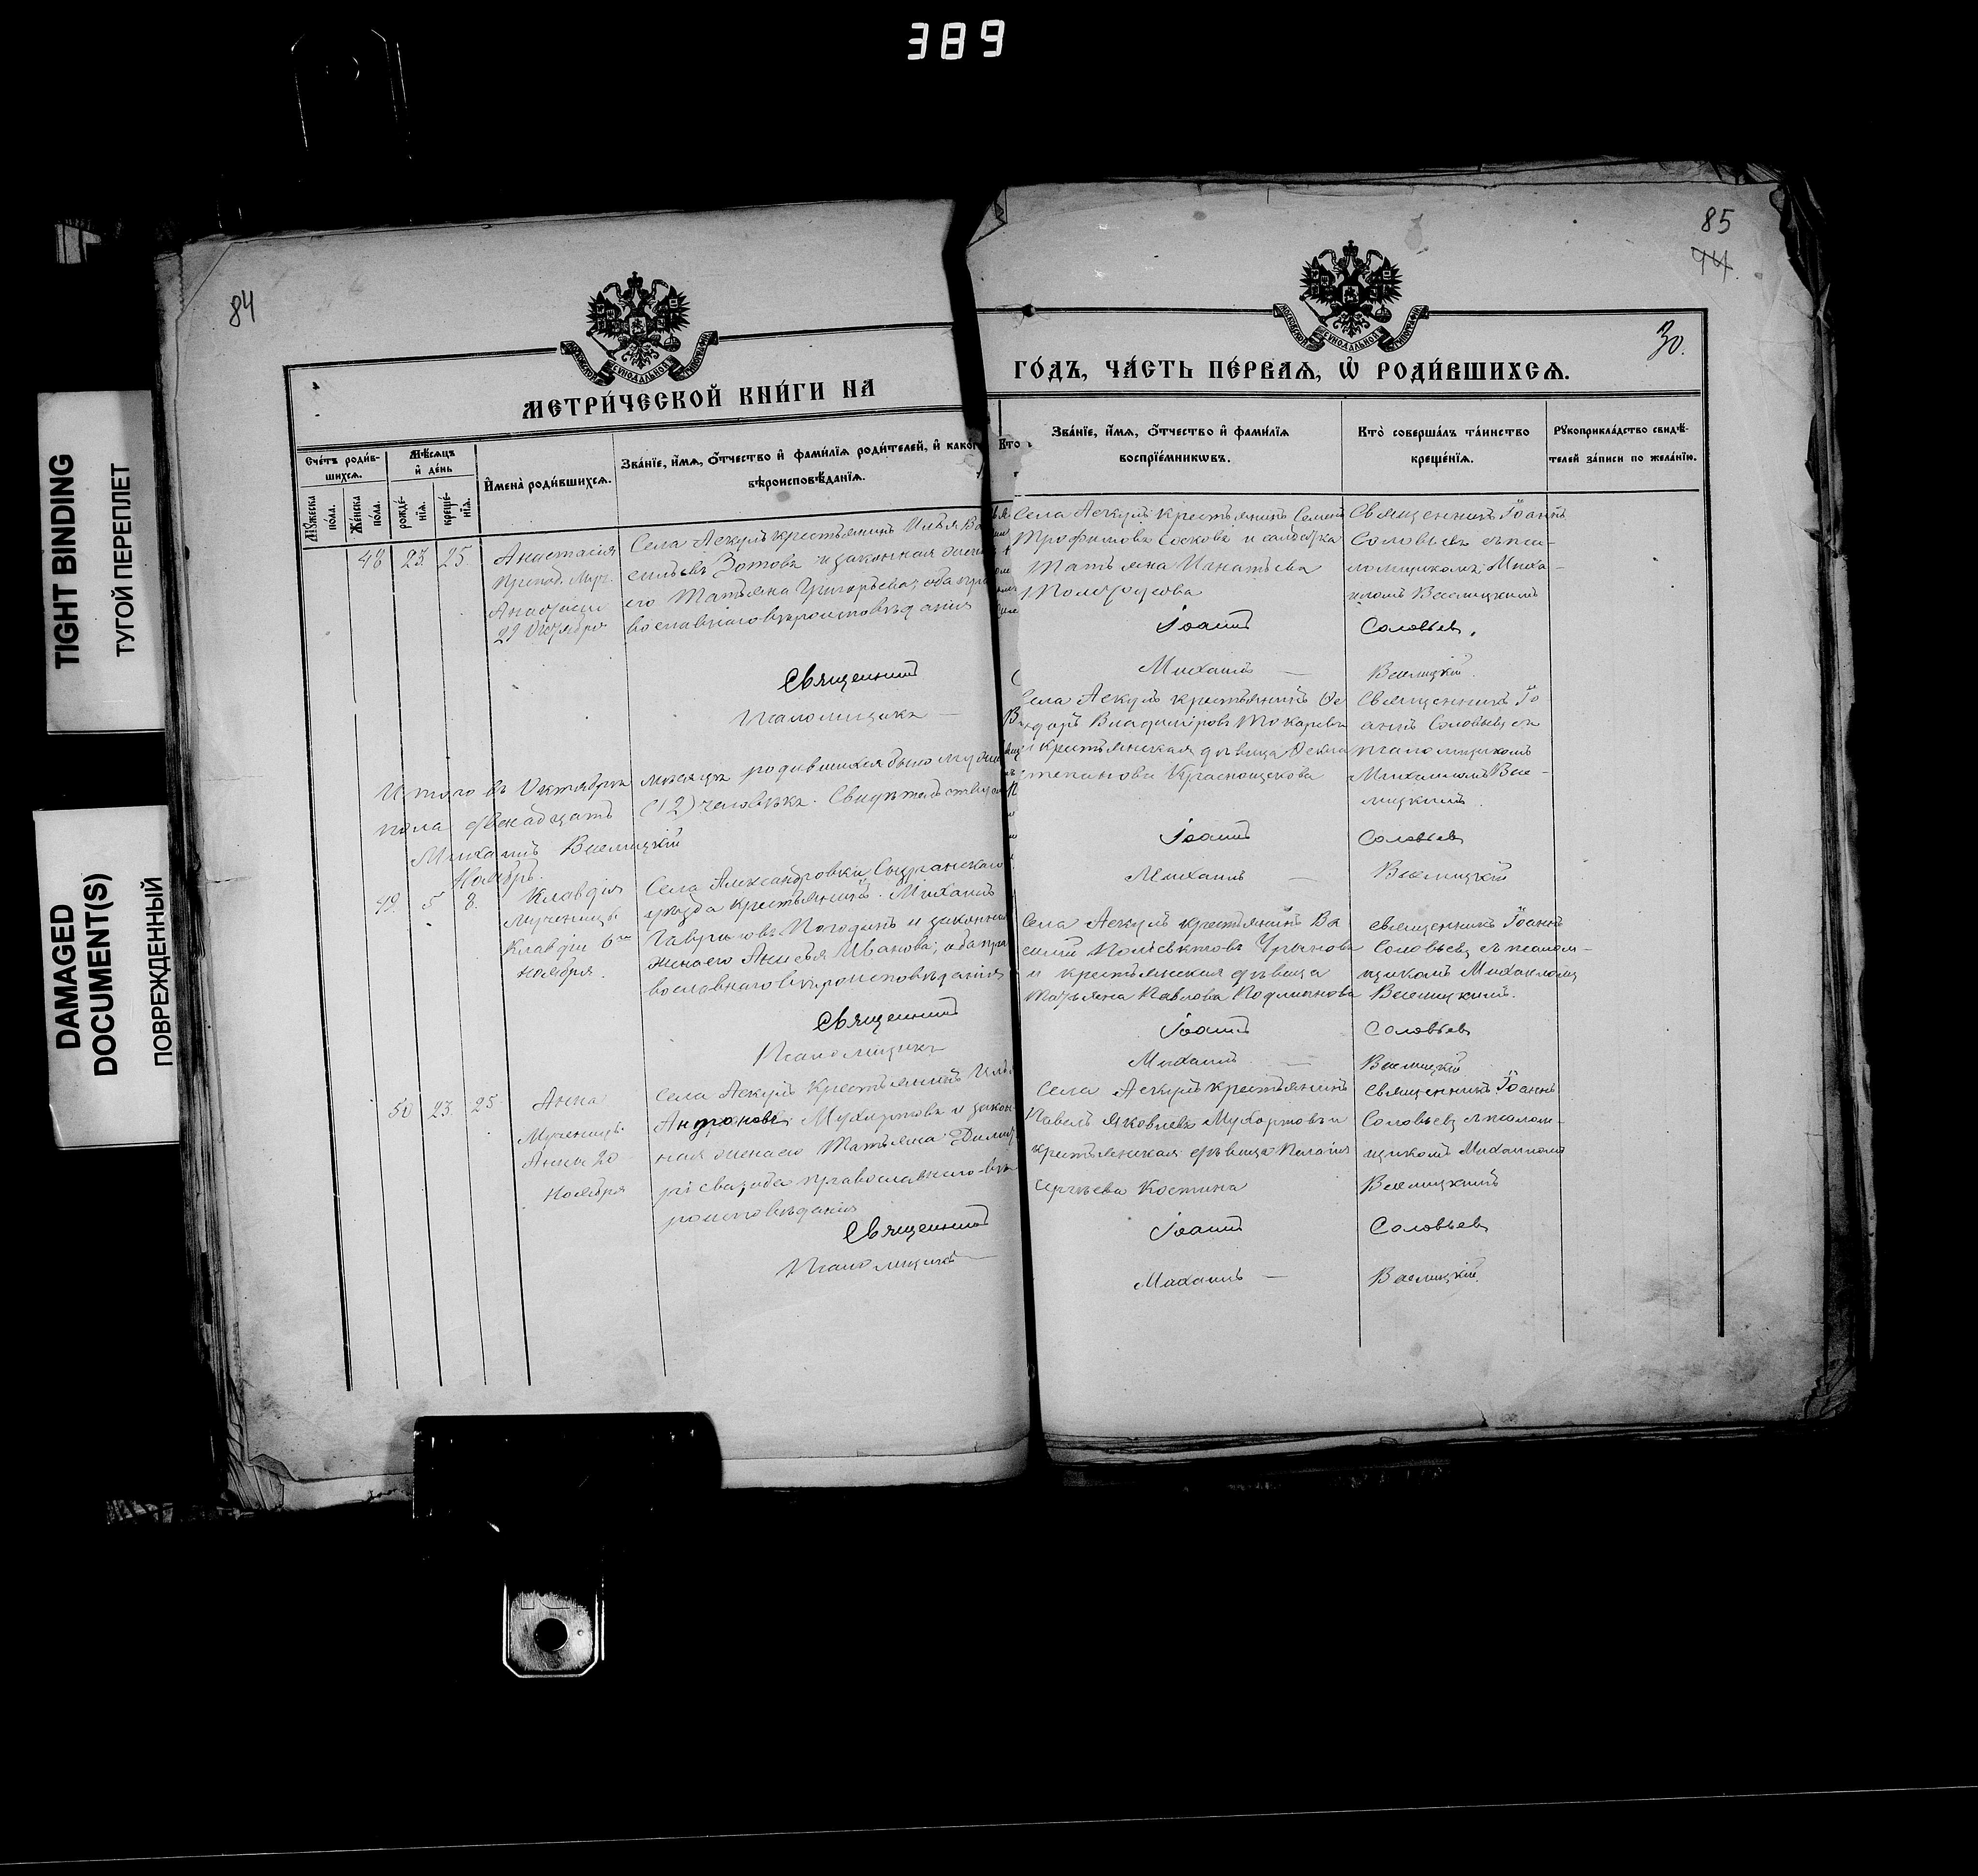 389
TIGHT BINDING
ТУГОЙ ПЕРЕПЛЕТ
DAMAGED
DOCUMENT(S)
ПОВРЕЖДЕННЫЙ
84
МЕТРИ́ЧЕСКОЙ КНИ́ГИ НА
Сче́тъ роди́в-
шихсѧ.
Мѣ́сѧцъ
и҆ де́нь
Мꙋ́жеска
по́ла.
Же́нска
по́ла.
рожде́-
нїѧ.
креще́-
нїѧ.
И҆мена̀ роди́вшихсѧ.
Зва́нїе, и҆́мѧ, ѻ҆́тчество и҆ фами́лїѧ роди́телей, и҆ како́г
вѣроисповѣ́данїѧ.
48 23 25
Анастасія
Препод. Муч.
Анастасіи
29 Октября
Села Аскулъ крестьянинъ Илья Ва
сильевъ Зотовъ и законная жена
его Татьяна Григорьева; оба пра
вославнаго вѣроисповѣданія
Священникъ
Псаломщикъ —
Итого въ Октябрѣ мѣсяцѣ родившихся было
пола двенадцать (12) человѣкъ.
Михаилъ Веелицкій
Ноябрь.
49. 5 8.
Клавдія
Мученицы
Клавдіи 6го
ноября.
Села Александровки Сызранскаго
уѣзда крестьянинъ Михаилъ
Гавриловъ Погодинъ и законная
жена его Анисья Иванова; оба пра
вославнаго вѣроисповѣданія
Священникъ
Псаломщикъ
50 23 25
Анна
Мученицы
Анны 20
ноября
Села Аскулъ Крестьянинъ Илья
Андроновъ Мухортовъ и закон-
ная жена его Татьяна Димит
ріева; оба православнаго вѣ-
роисповѣданія
Священникъ
Псаломщикъ —
85
94.
30.
ГО́ДЪ, ЧА́СТЬ ПЕ́РВАѦ, Ѡ҆ РОДИ́ВШИХСѦ.
Кто
Зва́нїе, и҆́мѧ, ѻ҆́тчество и҆ фами́лїѧ
воспрїе́мникѡвъ.
Кто̀ соверша́лъ та́инство
креще́нїѧ.
Рꙋкоприкла́дство свидѣ́-
телей за́писи по жела́нїю.
Села Аскулъ крестьянинъ Семенъ
Трофимовъ Сосковъ и солдатка
Татьяна Игнатьева
Священникъ Іоаннъ
Соловьевъ съ пса-
ломщикомъ Миха-
иломъ Веелицкимъ
Іоаннъ Соловьев.
Михаилъ — Веелицкій.
Села Аскулъ крестьянинъ Ѳе
одоръ Владиміровъ Токаревъ
и крестьянская дѣвица
Степанова Краснощекова
Священникъ Іо
аннъ Соловьевъ съ
псаломщикомъ
Михаиломъ Вее-
лицкимъ.
Іоаннъ Соловьев
Михаилъ — Веелицкій
Села Аскулъ крестьянинъ Ва
силій Поліевктовъ
и крестьянская дѣвица
Татьяна Павлова
священникъ Іоаннъ
Соловьевъ съ псалом-
щикомъ Михаиломъ
Веелицкимъ.
Іоаннъ Соловьев
Михаилъ — Веелицкій
Села Аскулъ крестьянинъ
Павелъ Яковлевъ Мухортовъ и
крестьянская дѣвица Пелагія
Сергѣева Костина
священникъ Іоаннъ
Соловьевъ съ псалом-
щикомъ Михаиломъ
Веелицкимъ
Іоаннъ Соловьев
Михаилъ — Веелицкій.